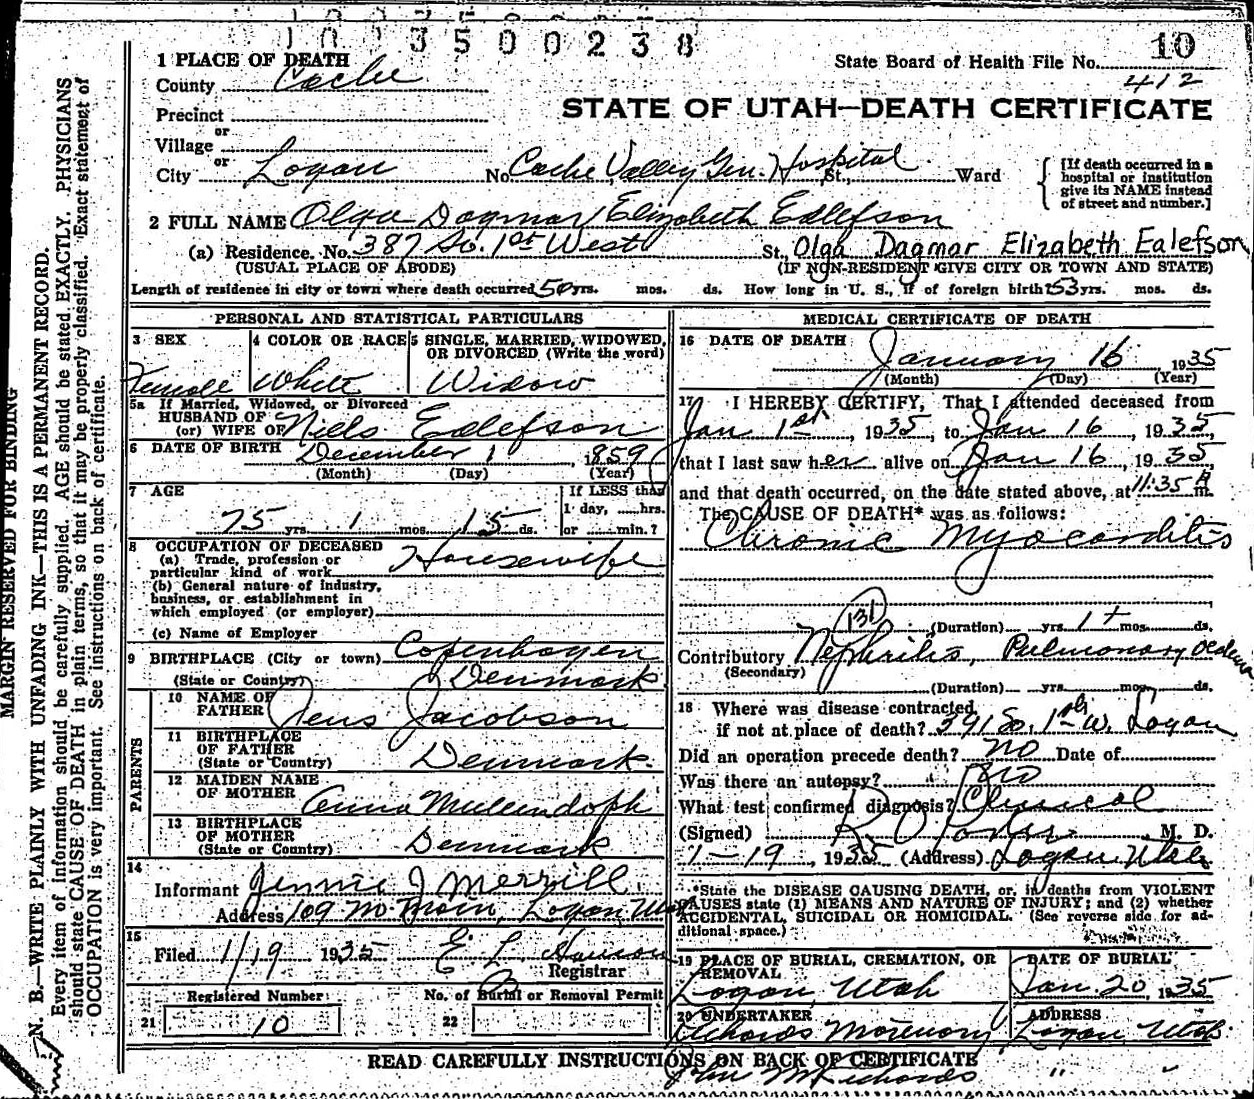 1 0 3 5 0 0 2 3 8
10
1 PLACE OF DEATH
State Board of Health File No.
412
County Cache
STATE OF UTAH—DEATH CERTIFICATE
Precinct
or
Village
or
City Logan No. Cache Valley Gen. Hospital St., Ward
[If death occurred in a
hospital or institution
give its NAME instead
of street and number.]
2 FULL NAME Olga Dagmar Elizabeth Edlefson
(a) Residence. No. 387 So. 1st West St. Olga Dagmar Elizabeth Ealefson
(USUAL PLACE OF ABODE) (IF NON-RESIDENT GIVE CITY OR TOWN AND STATE)
Length of residence in city or town where death occurred 50 yrs. mos. ds. How long in U. S., if of foreign birth? 53 yrs. mos. ds.
PERSONAL AND STATISTICAL PARTICULARS
3 SEX 4 COLOR OR RACE 5 SINGLE, MARRIED, WIDOWED, OR DIVORCED (Write the word)
Female White Widow
5a If Married, Widowed, or Divorced
HUSBAND OF
(or) WIFE OF Niels Edlefson
6 DATE OF BIRTH December 1, 1859
(Month) (Day) (Year)
7 AGE If LESS than
1 day, hrs.
75 yrs. 1 mos. 15 ds. or min.?
8 OCCUPATION OF DECEASED
(a) Trade, profession or
particular kind of work Housewife
(b) General nature of industry,
business, or establishment in
which employed (or employer)
(c) Name of Employer
9 BIRTHPLACE (City or town) Copenhagen
(State or Country) Denmark
PARENTS
10 NAME OF
FATHER Jens Jacobson
11 BIRTHPLACE
OF FATHER
(State or Country) Denmark.
12 MAIDEN NAME
OF MOTHER Anna
13 BIRTHPLACE
OF MOTHER
(State or Country) Denmark
14
Informant Jennie J Merrill
Address 109 No. Main, Logan
15
Filed 1/19 1935 E. L. Hanson
Registrar
Registered Number No. of Burial or Removal Permit
21 10 22
MEDICAL CERTIFICATE OF DEATH
16 DATE OF DEATH
January 16, 1935
(Month) (Day) (Year)
17 I HEREBY CERTIFY, That I attended deceased from
Jan 1st, 1935, to Jan 16, 1935,
that I last saw her alive on Jan 16, 1935,
and that death occurred, on the date stated above, at 11:35 m.
The CAUSE OF DEATH* was as follows:
Chronic Myocarditis
131
(Duration) yrs. 1+ mos. ds.
Contributory Nephritis, Pulmonary oedema
(Secondary)
(Duration) yrs. mos. ds.
18 Where was disease contracted
if not at place of death? 391 So. 1st W. Logan
Did an operation precede death? no Date of
Was there an autopsy? no
What test confirmed diagnosis? Clinical
(Signed) R O Porter, M. D.
1-19, 1935 (Address) Logan, Utah
*State the DISEASE CAUSING DEATH, or, in deaths from VIOLENT
CAUSES state (1) MEANS AND NATURE OF INJURY; and (2) whether
ACCIDENTAL, SUICIDAL OR HOMICIDAL. (See reverse side for ad-
ditional space.)
19 PLACE OF BURIAL, CREMATION, OR
REMOVAL
DATE OF BURIAL
Logan, Utah Jan. 20, 1935
20 UNDERTAKER ADDRESS
Richards Mortuary Logan, Utah
READ CAREFULLY INSTRUCTIONS ON BACK OF CERTIFICATE
Richards " "
MARGIN RESERVED FOR BINDING
N. B.—WRITE PLAINLY WITH UNFADING INK—THIS IS A PERMANENT RECORD.
Every item of information should be carefully supplied. AGE should be stated EXACTLY. PHYSICIANS
should state CAUSE OF DEATH in plain terms, so that it may be properly classified. Exact statement of
OCCUPATION is very important. See instructions on back of certificate.